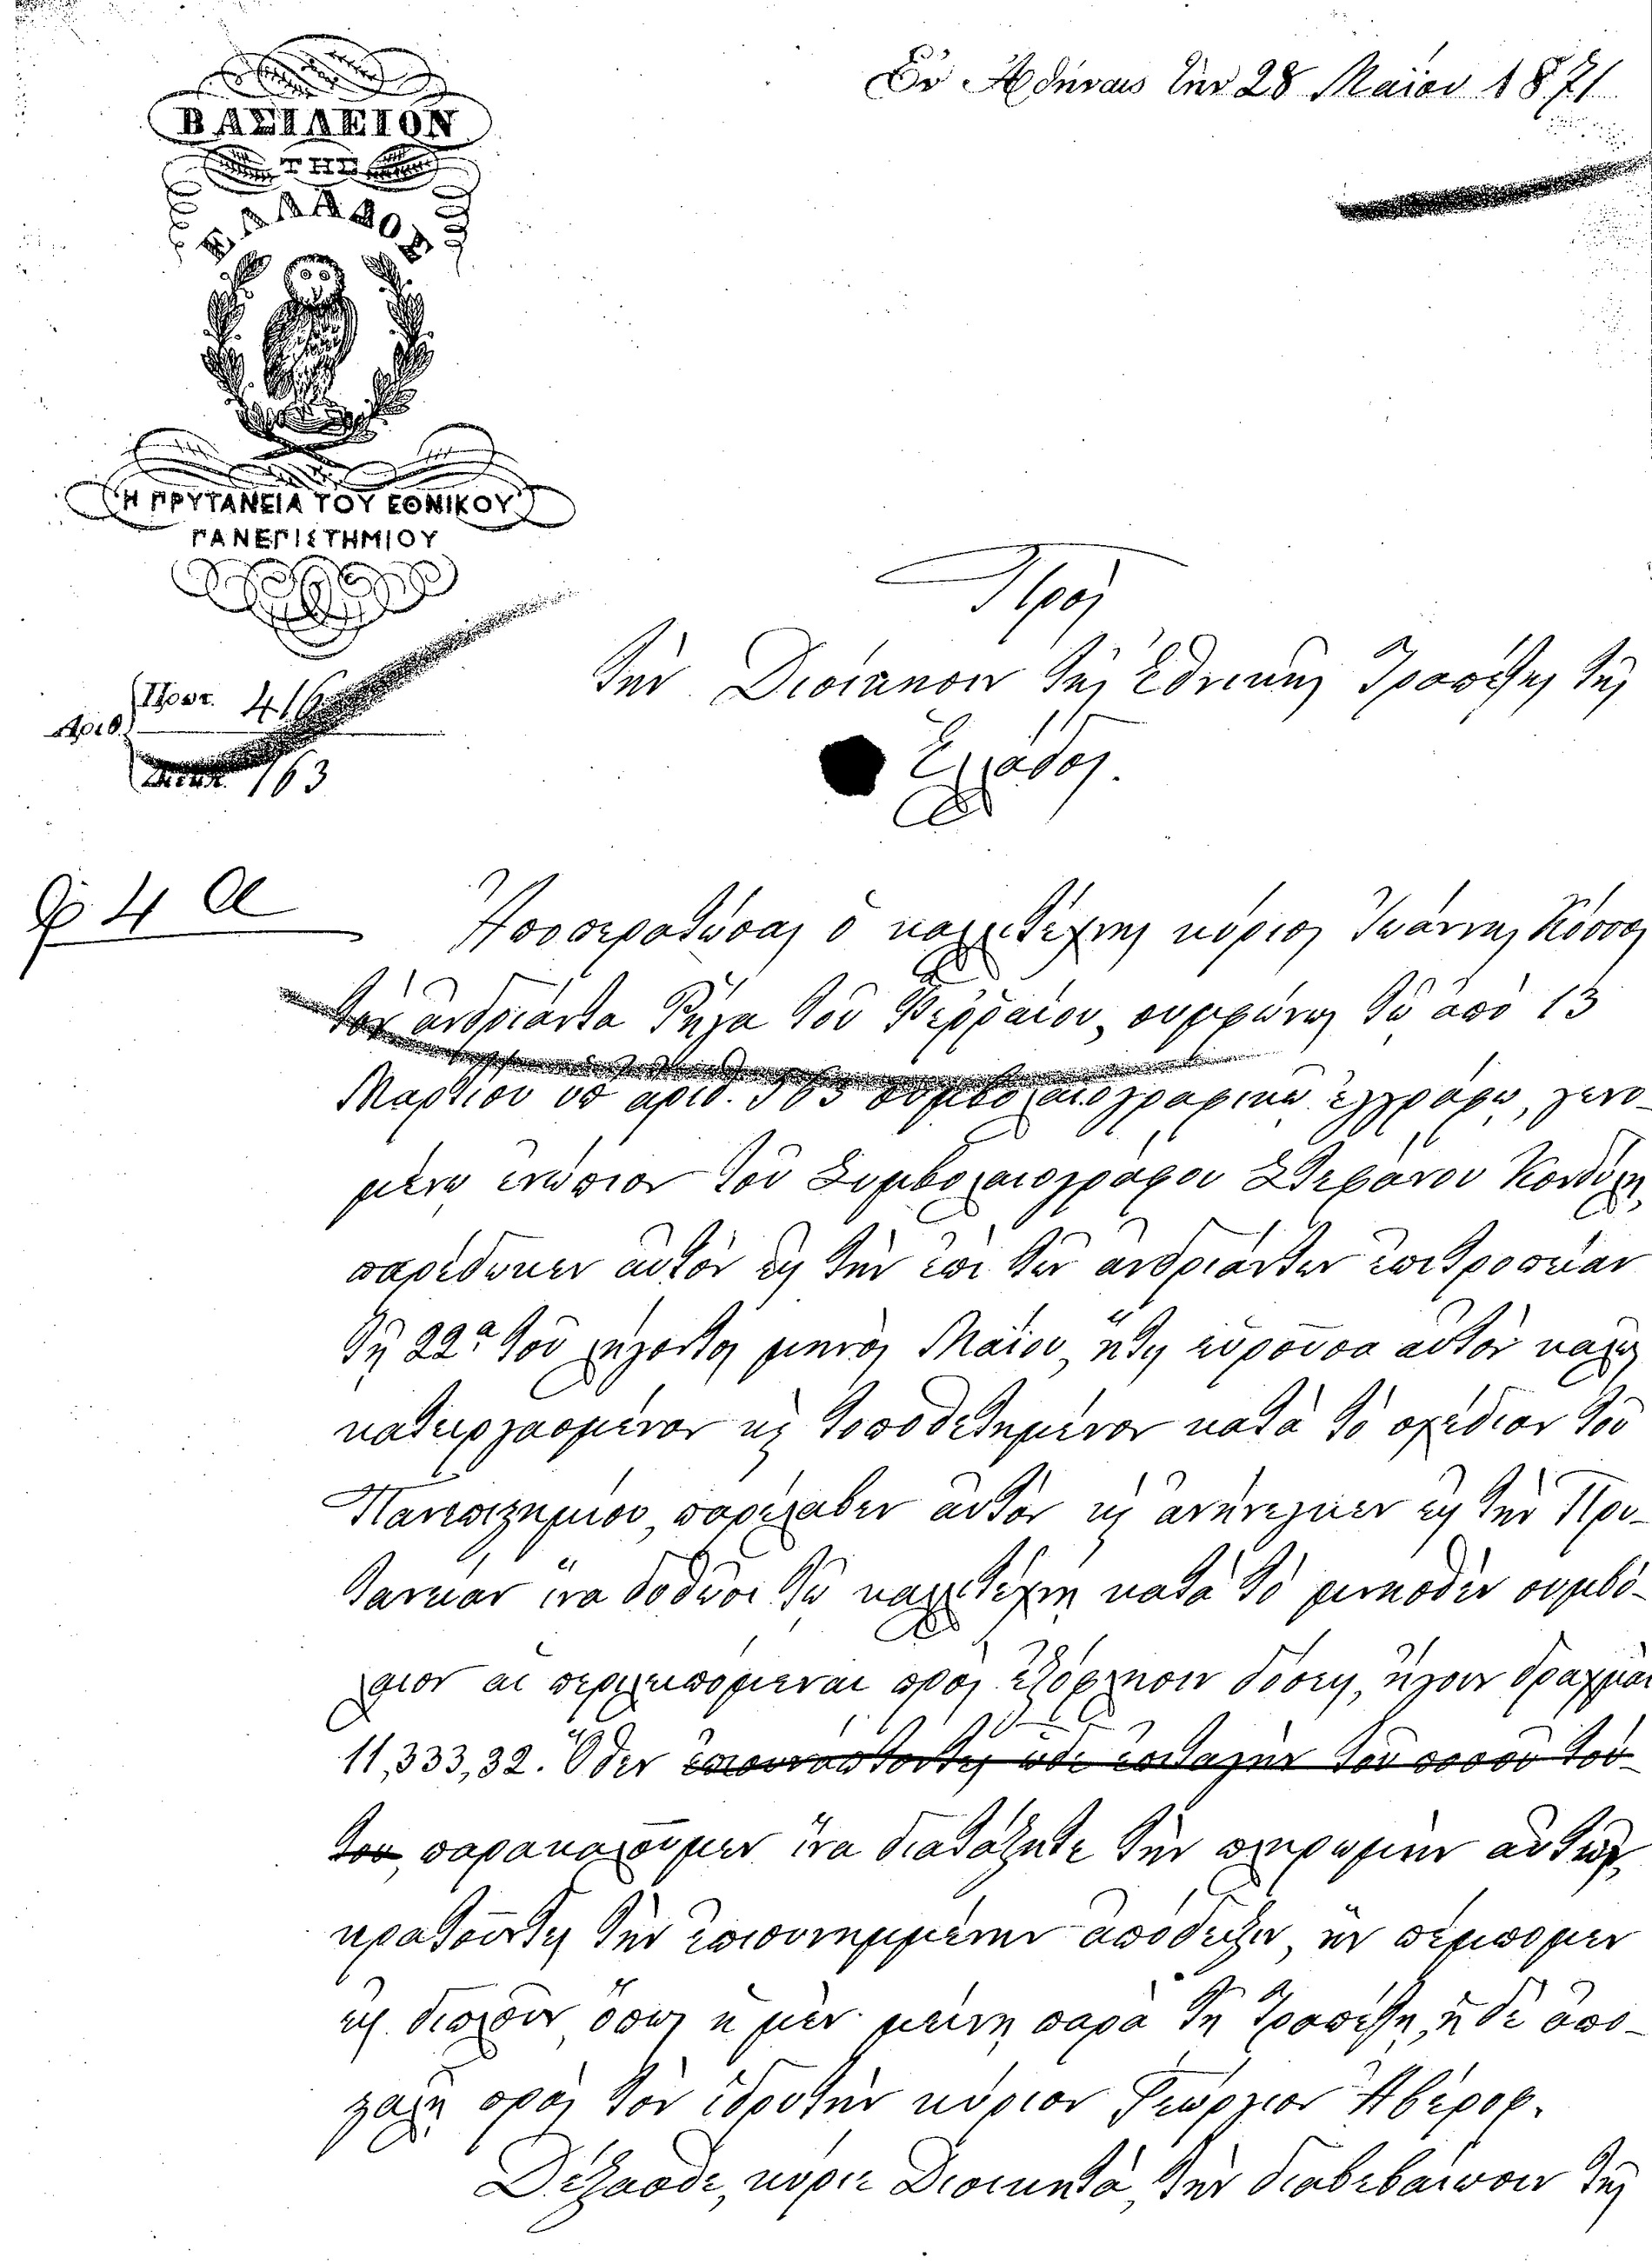 Ἐν Ἀθήναις τὴν 28 Μαΐου 1871
ΒΑΣΙΛΕΙΟΝ
ΤΗΣ
ΕΛΛΑΔΟΣ
Ἡ ΠΡΥΤΑΝΕΙΑ ΤΟΥ ΕΘΝΙΚΟΥ
ΠΑΝΕΠΙΣΤΗΜΙΟΥ
Πρὸς
τὴν Διοίκησιν τῆς Ἐθνικῆς Τραπέζης τῆς
Ἑλλάδος.
Ἀριθ. Πρωτ. 416
Διεκπ. 163
Φ 4 α
Ἀποπερατώσας ὁ καλλιτέχνης κύριος Ἰωάννης Κόσσος
τὸν ἀνδριάντα Ῥήγα τοῦ Φερραίου, συμφώνως τῷ ἀπὸ 13
Μαρτίου ὑπ' ἀριθ. 563 συμβολαιογραφικῷ ἐγγράφῳ, γενο-
μένῳ ἐνώπιον τοῦ Συμβολαιογράφου Στεφάνου Κονδύλη,
παρέδωκεν αὐτὸν εἰς τὴν ἐπὶ τῶν ἀνδριάντων ἐπιτροπείαν
τῇ 22ᾳ τοῦ λήγοντος μηνὸς Μαΐου, ἥτις εὑροῦσα αὐτὸν καλῶς
κατειργασμένον κὶ τοποθετημένον κατὰ τὸ σχέδιον τοῦ
Πανεπιστημίου, παρέλαβεν αὐτὸν κὶ ἀνήνεγκεν εἰς τὴν Πρυ-
τανείαν ἵνα δοθῶσι τῷ καλλιτέχνῃ κατὰ τὸ μνησθὲν συμβό-
λαιον αἱ περιλειπόμεναι πρὸς ἐξόφλησιν δόσεις, ἤγουν δραχμαὶ
11,333,32. Ὅθεν ἐπισυνάπτοντες ὧδε ἐπιταγὴν τοῦ ποσοῦ τού-
του, παρακαλοῦμεν ἵνα διατάξητε τὴν πληρωμὴν αὐτῶν,
κρατοῦντες τὴν ἐπισυνημμένην ἀπόδειξιν, ἣν πέμπομεν
εἰς διπλοῦν ὅπως ἡ μὲν μείνῃ παρὰ τῇ Τραπέζῃ, ἡ δὲ ἀπο-
σταλῇ πρὸς τὸν ἱδρυτὴν κύριον Γεώργιον Ἀβέρωφ.
Δέξασθε, κύριε Διοικητά, τὴν διαβεβαίωσιν τῆς